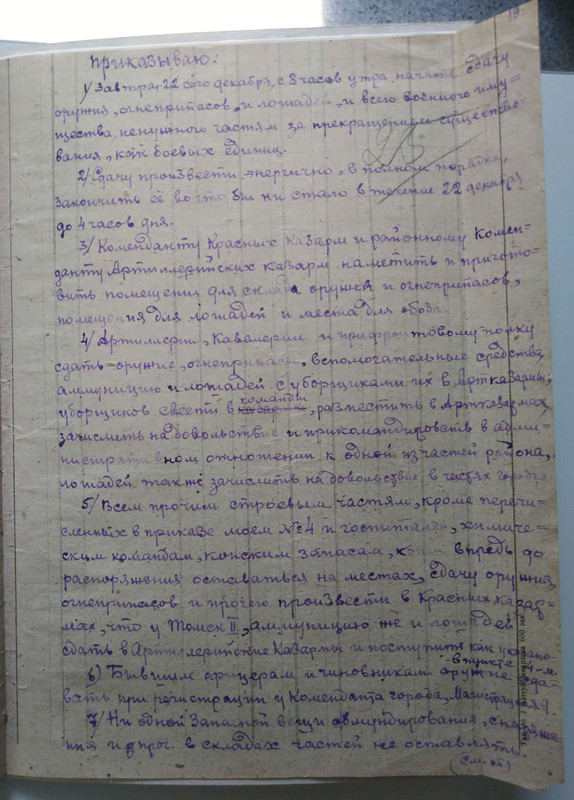 19.
приказываю:
1/ Завтра, 22 сего декабря, с 8 часов утра, начать сдачу
оружия, огнеприпасов, и лошадей, и всего военного иму=
щества, ненужного частям за прекращением существо=
вания, как боевых единиц.
2/ Сдачу произвести энергично, в полном порядке,
закончить её во что бы ни стало в течение 22 декабря
до 4 часов дня.
3/ Коменданту Красных казарм и районному Комен=
данту Артиллерийских казарм наметить и пригото=
вить помещения для склада оружия и огнеприпасов,
помещения для лошадей и места для обоза.
4/ Артиллерии, Кавалерии и прифронтовому полку
сдать оружие, огнеприпасы, вспомогательные средства,
амуницию и лошадей с уборщиками их в Артказармы;
уборщиков свести в команды, разместить в Артказармах,
зачислить на довольствие и прикомандировать в адми=
нистративном отношении к одной из частей района,
лошадей также зачислить на довольствие в частях города.
5/ Всем прочим строевым частям, кроме перечи=
сленных в приказе моем № 4 и госпиталей, химиче=
ским командам, конским запасам, коим впредь до
распоряжения оставаться на местах, сдачу оружия,
огнеприпасов и прочего произвести в Красных казар=
мах, что у Томск II, аммуницию же и лошадей
сдать в Артиллерийские Казармы и поступить как указано
в пункте 4-м.
6) Бывшим офицерам и чиновникам оружие сда=
вать при регистрации у Коменданта города, Магистратская 9.
7/ Ни одной запасной вещи обмундирования, снаряже
ния и проч. в складах частей не оставлять.
(См. об)